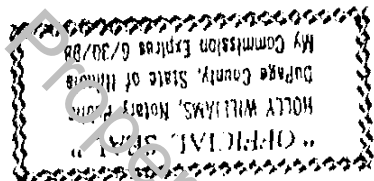 " OFFICIAL SEAL "
HOLLY WILLIAMS, Notary Public
DuPage County, State of Illinois
My Commission Expires 6/30/98
Proper